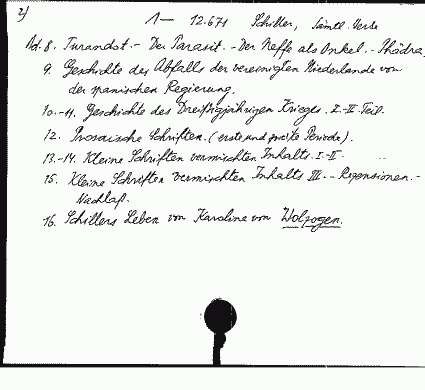 2)
1 — 12.671 Schiller, Sämtl. Werke
Bd. 8. Turandot. - Der Parasit. - Der Neffe als Onkel. - Phädra.
9. Geschichte des Abfalls der vereinigten Niederlande von
der spanischen Regierung.
10.-11. Geschichte des Dreißigjährigen Krieges. I-II. Teil.
12. Prosaische Schriften. (erste und zweite Periode).
13.-14. Kleine Schriften vermischten Inhalts. I-II.
15. Kleine Schriften vermischten Inhalts III. - Rezensionen. -
Nachlaß.
16. Schillers Leben von Karoline von Wolzogen.